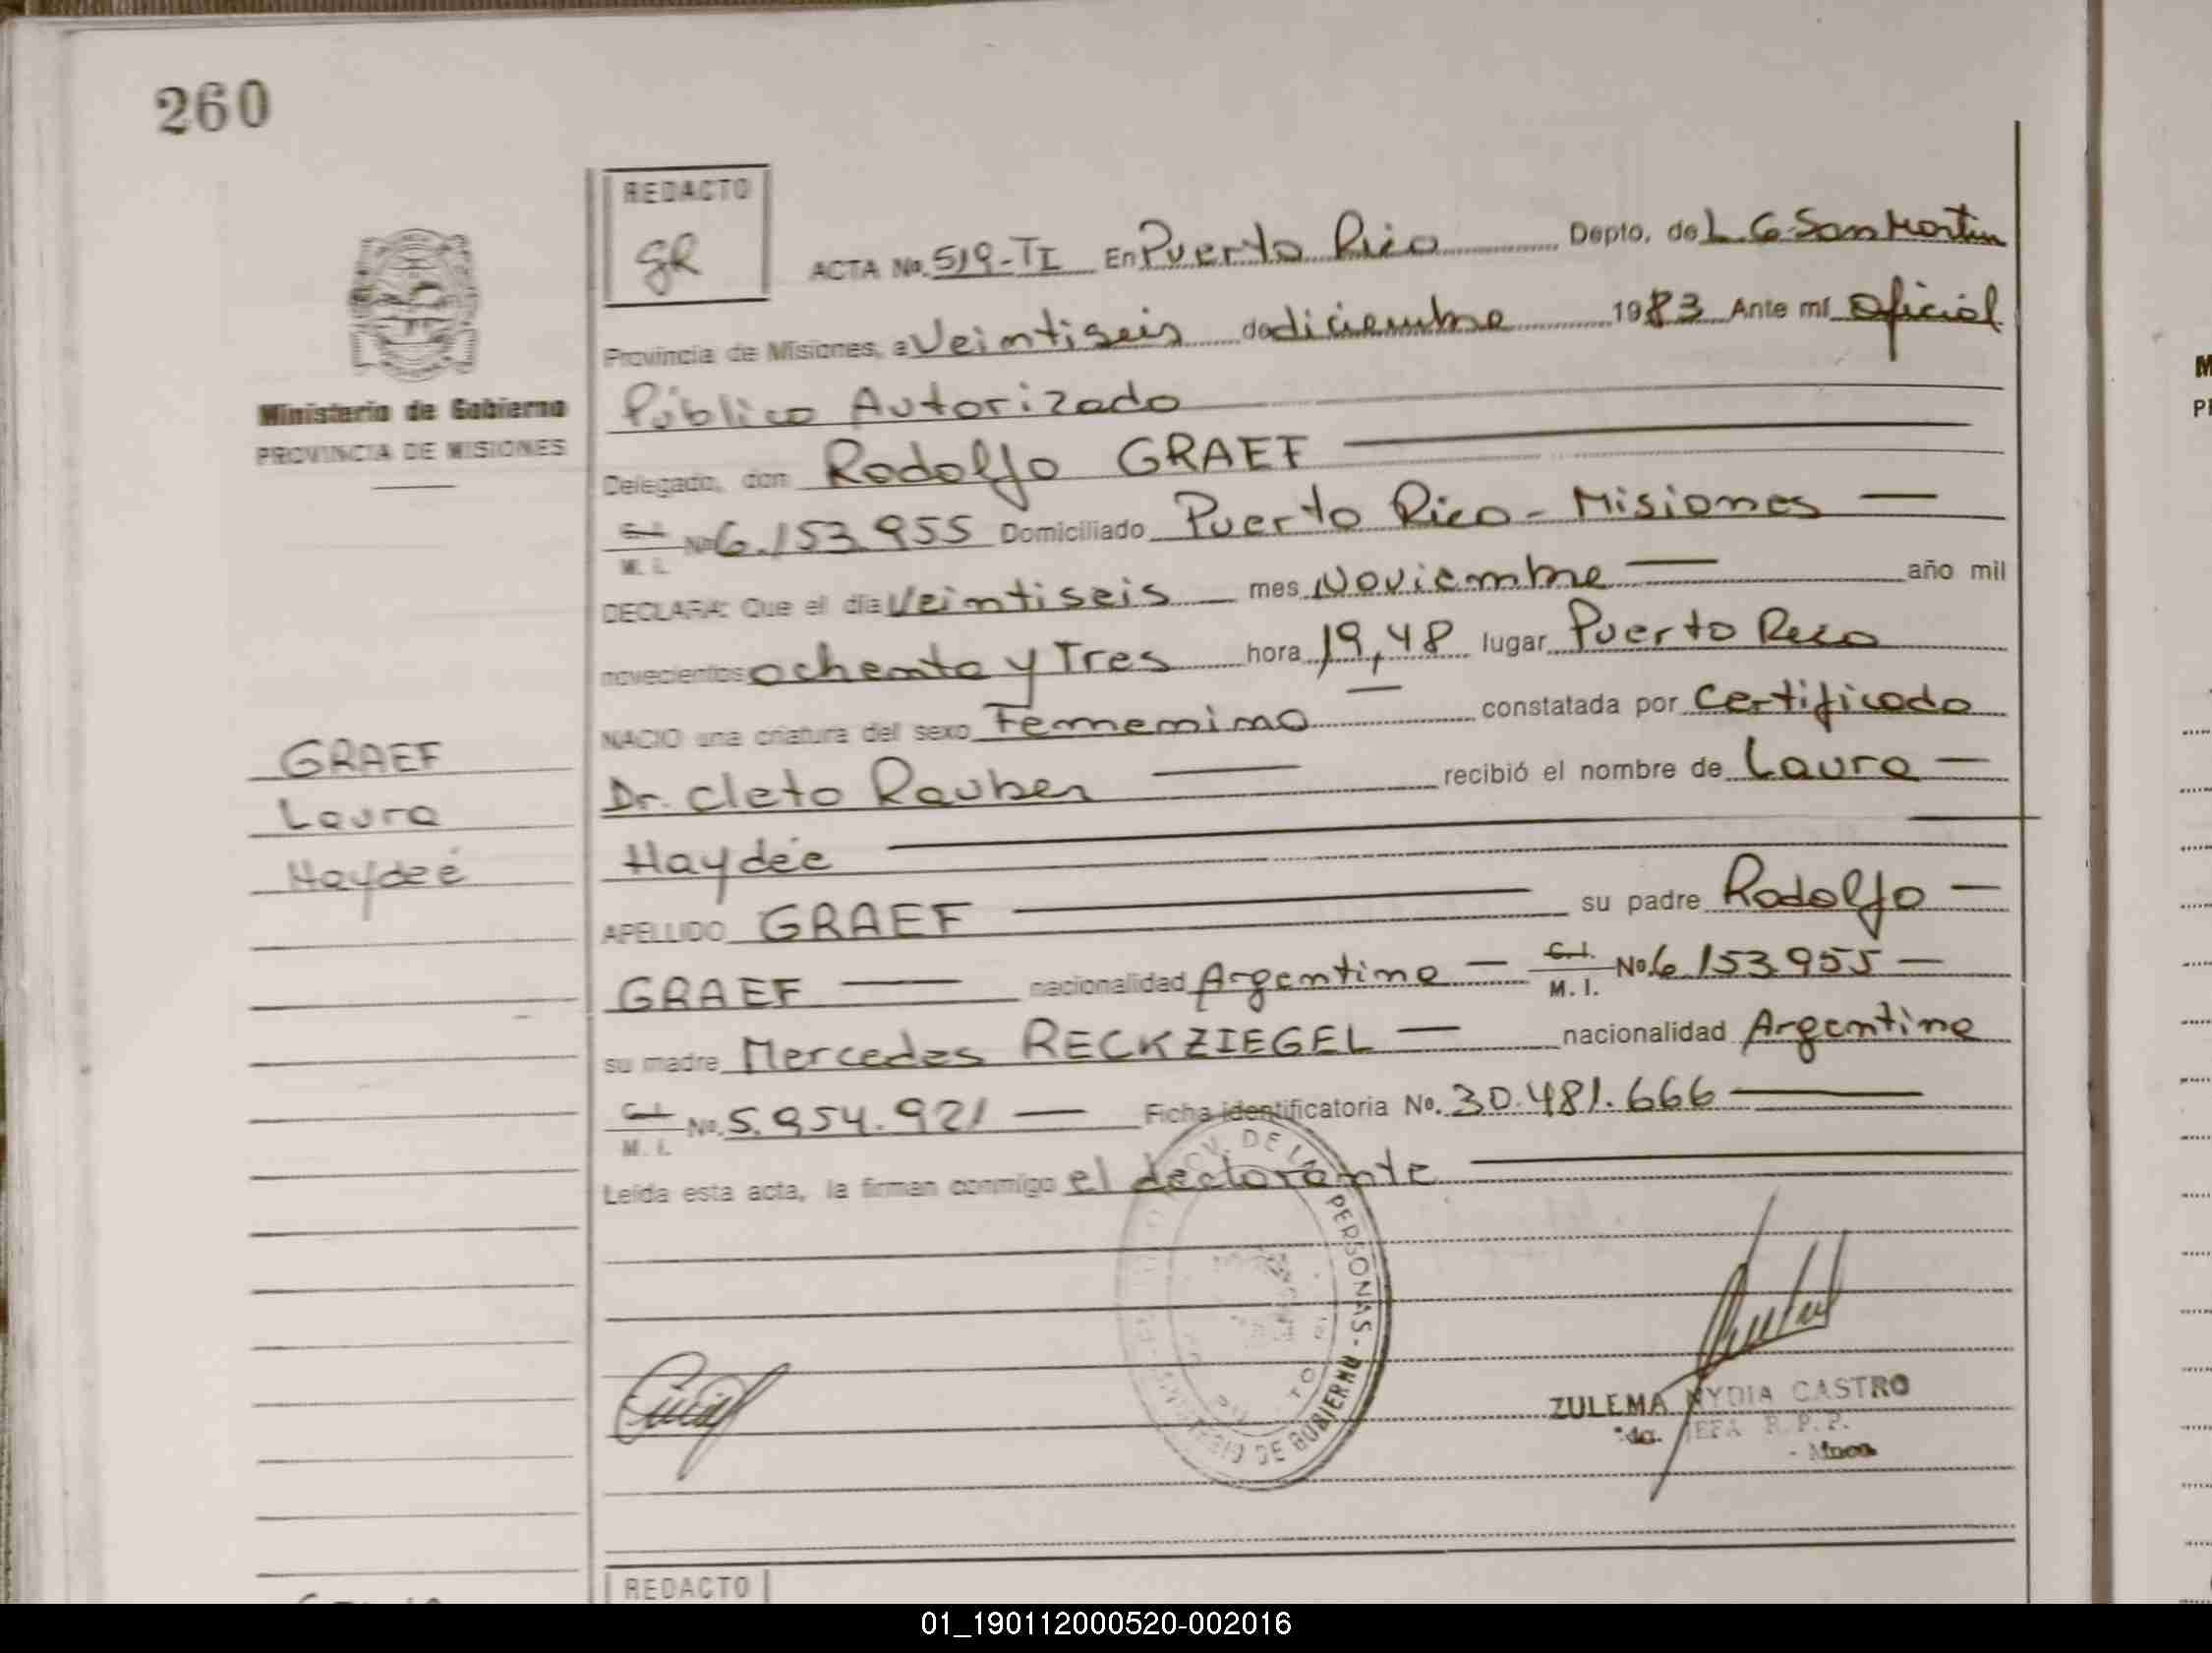 260
REDACTO
gR
ACTA No. 519-TI En Puerto Rico Depto. de L. G. San Martin
Provincia de Misiones, a Veintiseis de diciembre 1983 Ante mí Oficial
Ministerio de Gobierno
PROVINCIA DE MISIONES
Público Autorizado
Delegado, don Rodolfo GRAEF
C.I. M. I. No 6.153.955 Domiciliado Puerto Rico - Misiones
DECLARA: Que el día Veintiseis mes Noviembre año mil
novecientos ochenta y Tres hora 19,48 lugar Puerto Rico
NACIO una criatura del sexo Femenino constatada por Certificado
Dr. Cleto Rauber recibió el nombre de Laura
Haydée
APELLIDO GRAEF su padre Rodolfo
GRAEF nacionalidad Argentina C.I. M. I. No 6.153.955
su madre Mercedes RECKZIEGEL nacionalidad Argentina
C.I. M. I. No. 5.954.921 Ficha identificatoria No. 30.481.666
Leída esta acta, la firman conmigo el declarante
GRAEF
Laura
Haydeé
DE LAS PERSONAS - MINISTERIO DE GOBIERNO
ZULEMA NYDIA CASTRO
JEFA R. P. P.
REDACTO
01_190112000520-002016